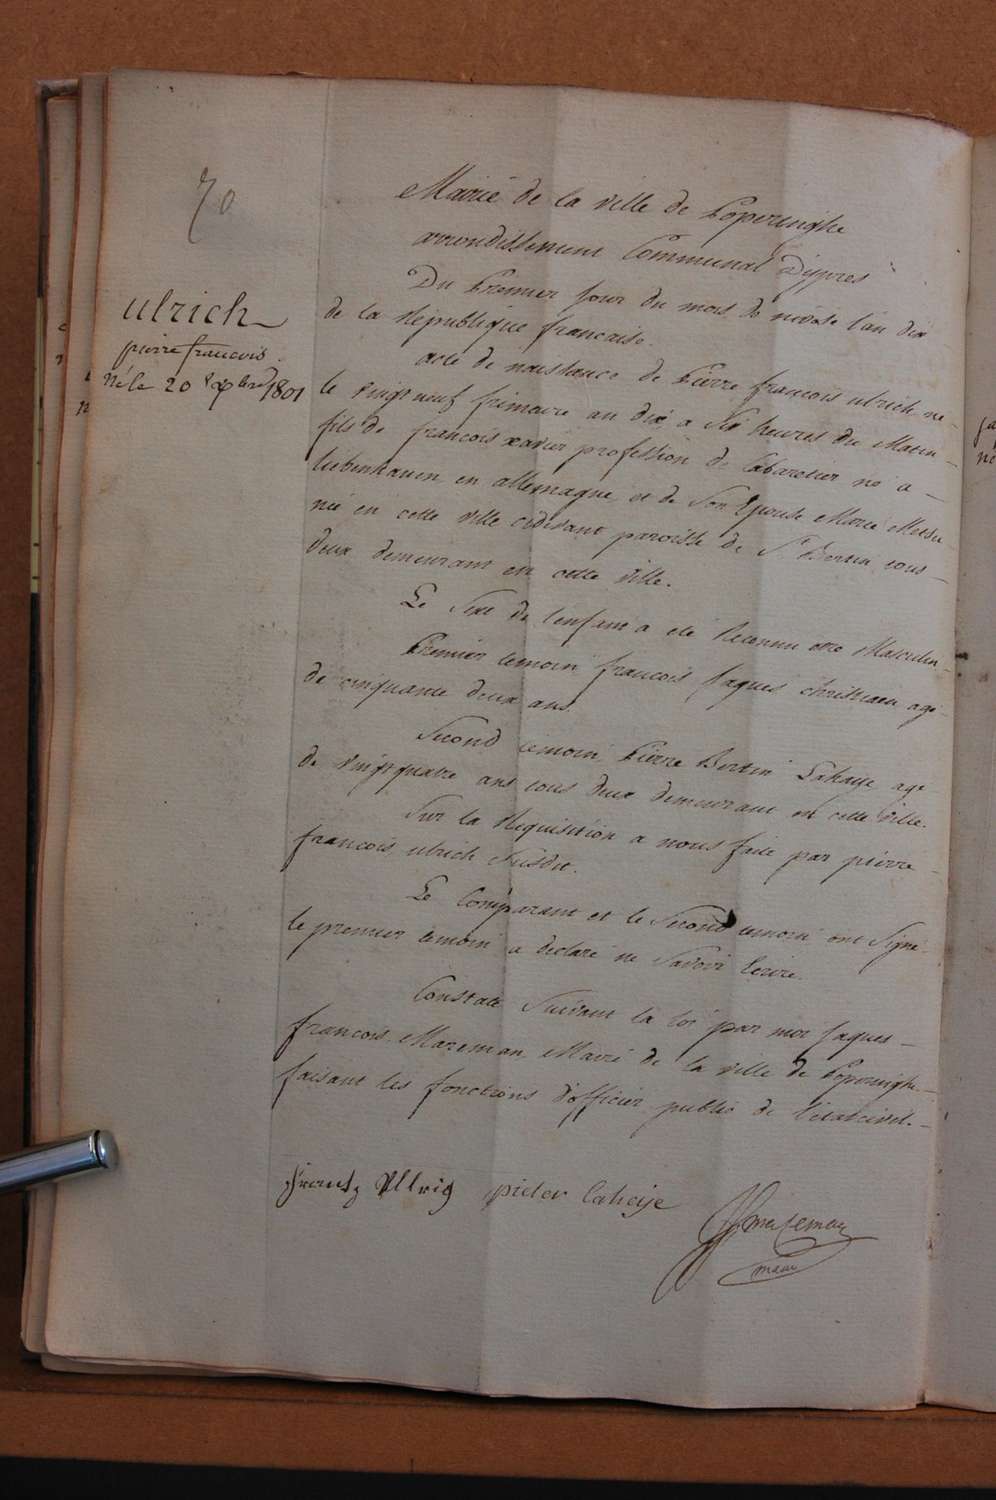 70
ulrich
pierre francois.
né le 20 Xbre 1801
Mairie de la ville de Poperinghe
arrondissement Communal d'ypres
Du Premier jour du mois de nivose l'an dix
de la République francaise.
acte de naissance de Pierre francois ulrich né
le vingt neuf frimaire an dix, a Six heures du Matin -
fils de francois xavier profession de Cabaretier né a -
Liebenhauen en allemagne, et de Son Epouse Marie
née en cette ville cidevant paroisse de St Bertin tous -
deux demeurant en cette ville.
Le Sexe de l'enfant a eté Reconnu etre Masculin
Premier temoin francois Jaques christiaen agé
de cinquante deux ans.
Second temoin Pierre Bertin Lahaije agé
de vingt quatre ans tous deux demeurant en cette ville.
Sur la Requisition a nous faite par pierre
francois ulrich Susdit.
Le Comparant et le Second temoin ont Signé
le premier temoin a declaré ne Savoir Ecrire.
Constaté Suivant la loi par moi Jaques -
francois Mazeman Maire de la ville de Poperinghe -
faisant les fonctions d'officier public de l'état civil. -
frantz Ullrig pieter Laheije
JF Mazeman
maire